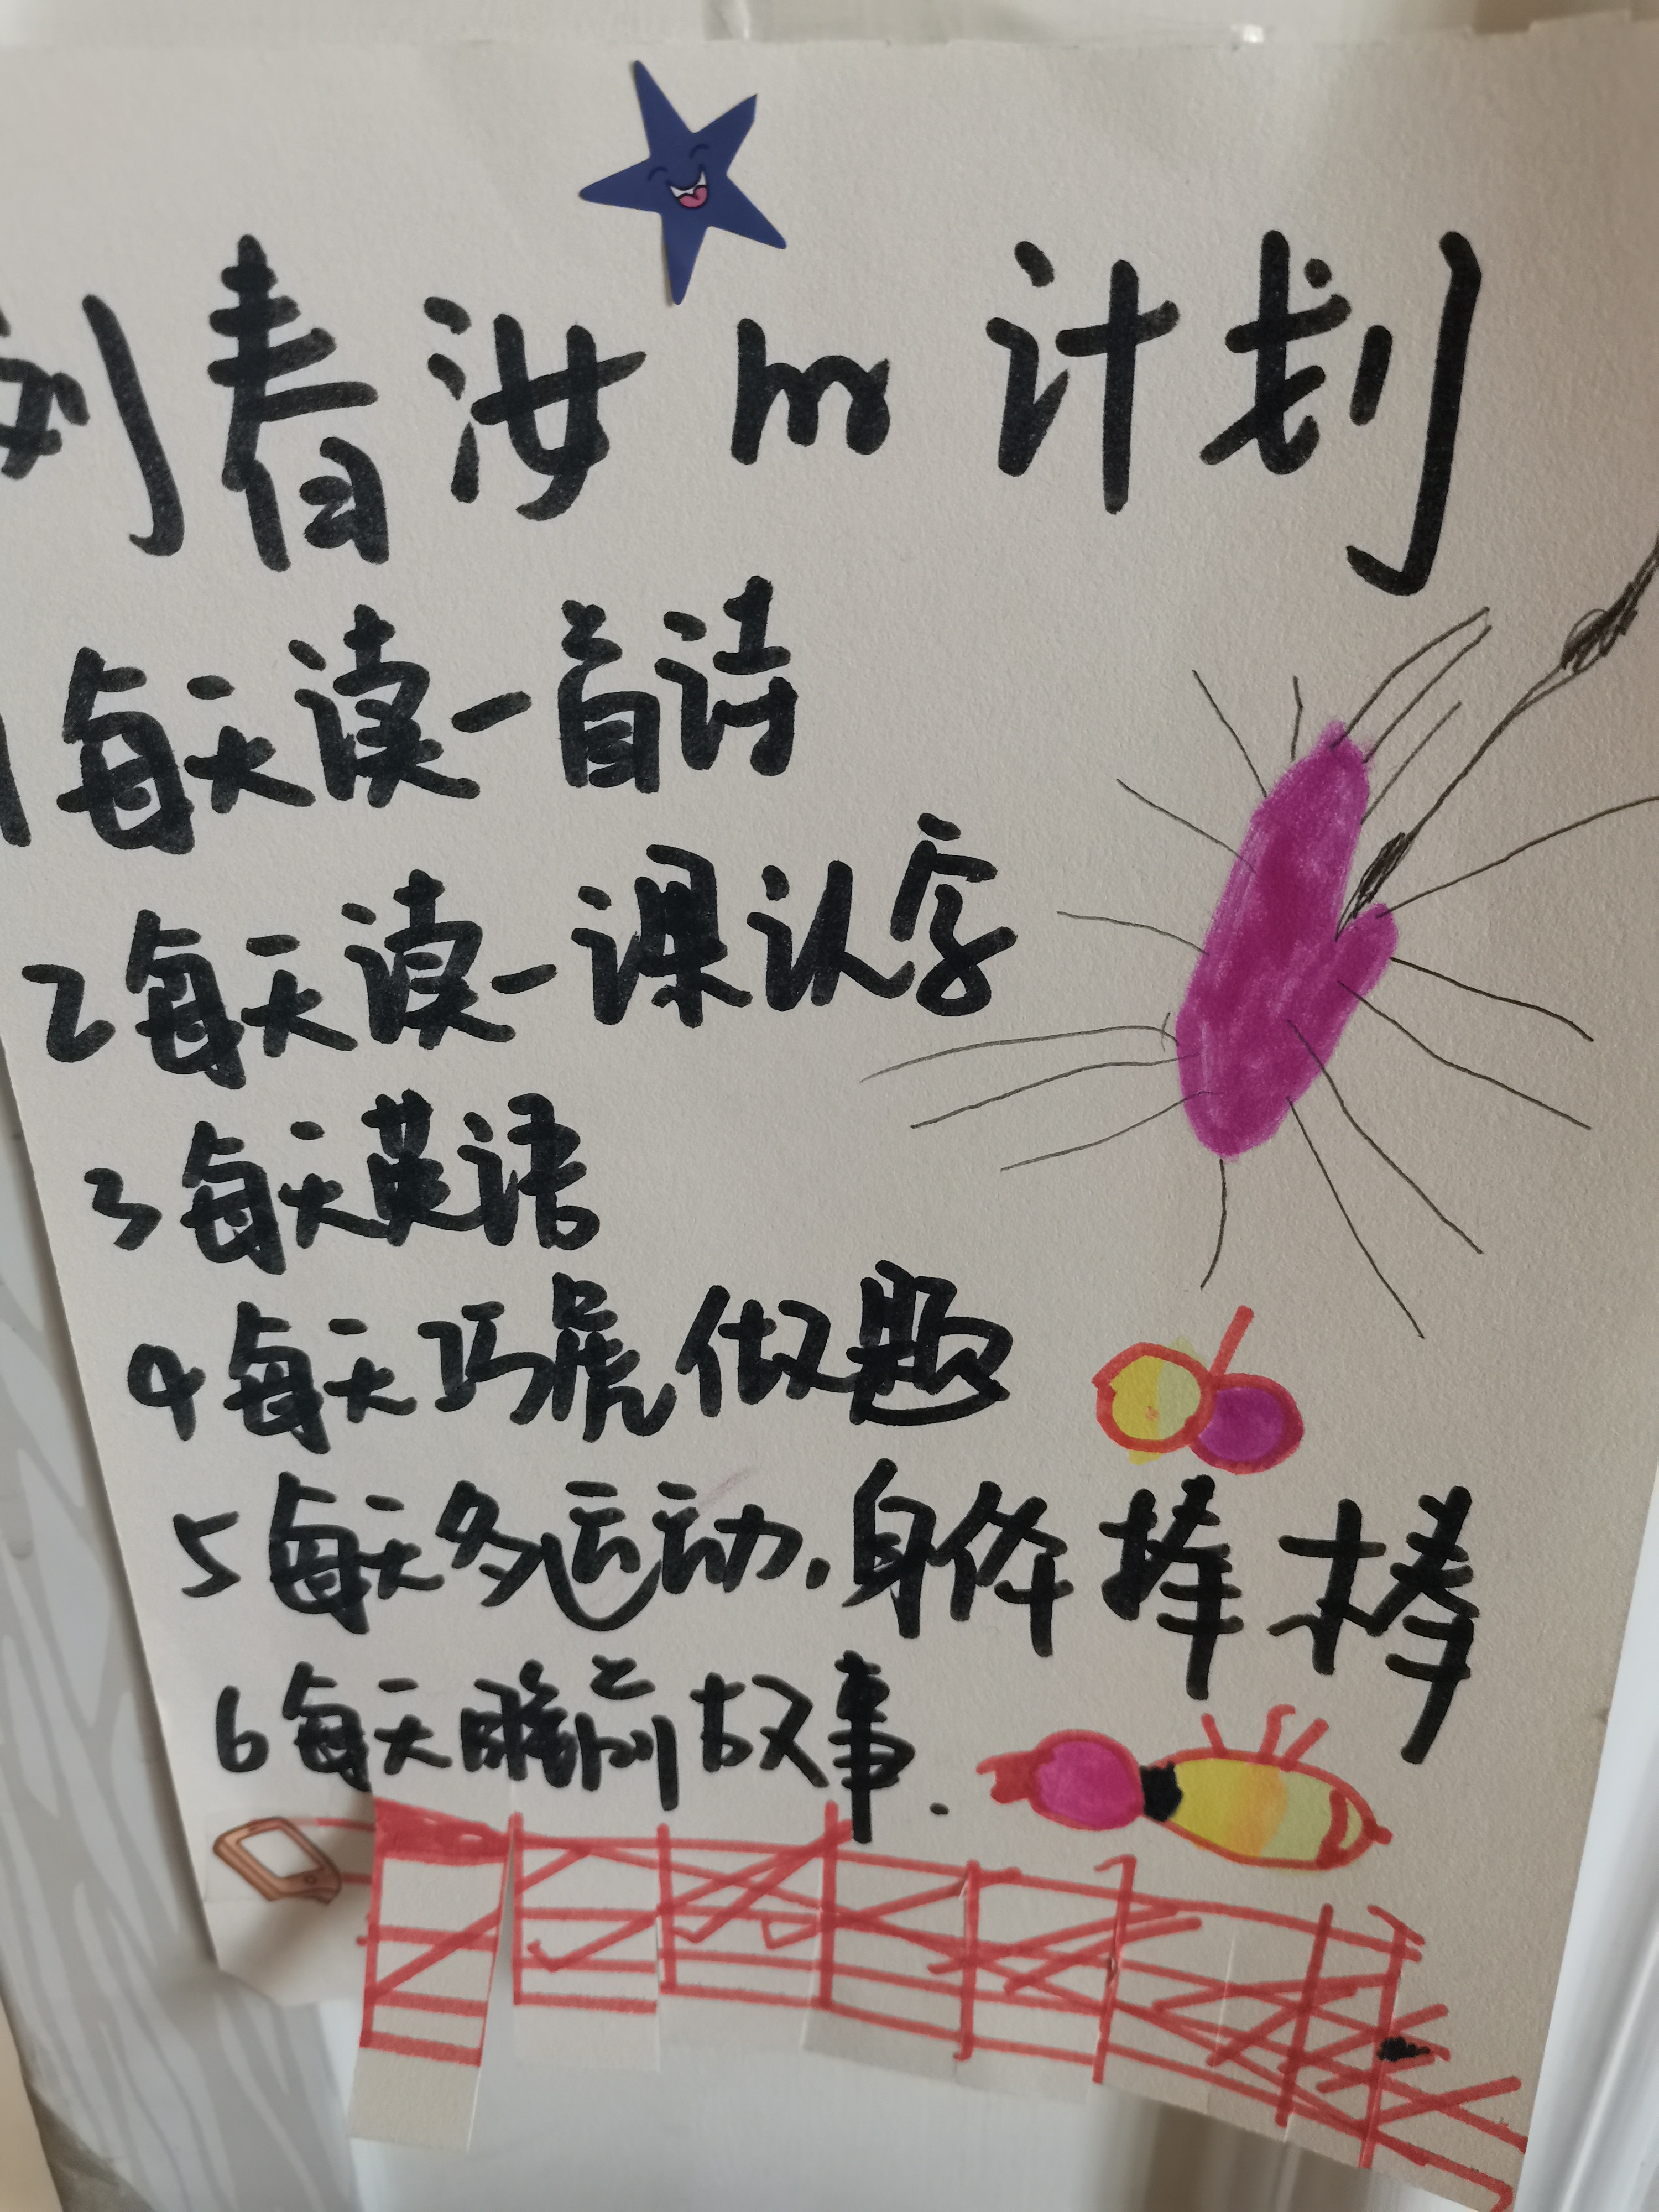 刘春汝m计划
1每天读一首诗
2每天读一课认字
3每天英语
4每天巧虎做题
5每天多运动.身体棒棒
6每天睡前故事.